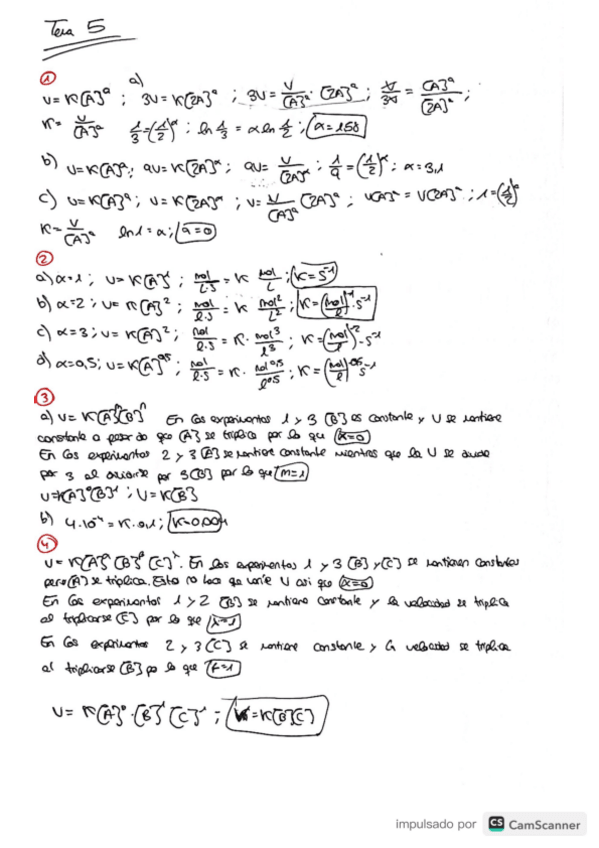 Tema 5
① a)
v = K[A]ᵅ ; 3v = K[2A]ᵅ ; 3v = v/[A]ᵅ · [2A]ᵅ ; v/3v = [A]ᵅ/[2A]ᵅ ;
K = v/[A]ᵅ 1/3 = (1/2)ᵅ ; ln 1/3 = α ln 1/2 ; α = 1,58
b) v = K[A]ᵅ ; 9v = K[2A]ᵅ ; 9v = v/[2A]ᵅ ; 1/9 = (1/2)ᵅ ; α = 3,1
c) v = K[A]ᵅ ; v = K[2A]ᵅ ; v = v/[A]ᵅ [2A]ᵅ ; v[A]ᵅ = v[2A]ᵅ ; 1 = (1/2)ᵅ
K = v/[A]ᵅ ln 1 = α ; α = 0
②
a) α = 1 ; v = K[A]¹ ; mol/L·s = K mol/L ; K = s⁻¹
b) α = 2 ; v = K[A]² ; mol/l·s = K mol²/L² ; K = (mol/l)⁻¹ · s⁻¹
c) α = 3 ; v = K[A]² ; mol/l·s = K · mol³/l³ ; K = (mol/l)⁻² · s⁻¹
d) α = 0,5 ; v = K[A]⁰'⁵ ; mol/l·s = K · mol⁰'⁵/l⁰'⁵ ; K = (mol/l)⁰'⁵ s⁻¹
③
a) v = K[A]ⁿ[B]ⁿ En los experimentos 1 y 3 [B] es constante y v se mantiene
constante a pesar de que [A] se triplica por lo que α = 0
En los experimentos 2 y 3 [A] se mantiene constante mientras que la v se
por 3 al por 3 [B] por lo que m = 1
v = K[A]⁰[B]¹ ; v = K[B]
b) 4·10⁻⁴ = K · 0,1 ; K = 0,004
④
v = K[A]ᵅ [B]ᵝ [C]ˣ. En los experimentos 1 y 3 [B] y [C] se mantienen constantes
pero [A] se triplica. Esto no hace que varíe v así que α = 0
En los experimentos 1 y 2 [B] se mantiene constante y la velocidad se triplica
al triplicarse [C] por lo que λ = 1
En los experimentos 2 y 3 [C] se mantiene constante y la velocidad se triplica
al triplicarse [B] po lo que = 1
v = K[A]⁰ · [B]¹ [C]¹ ; v = K[B][C]
impulsado por CS CamScanner